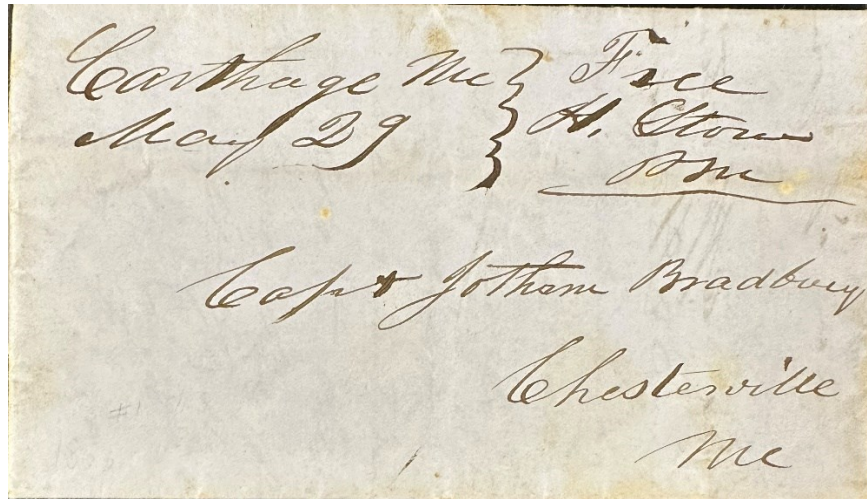 Carthage Me } Free
May 29 } H. Storer
PM
Capt Jotham Bradbury
Chesterville
Me
#1